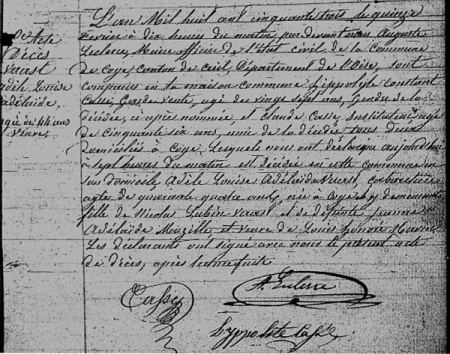 L'an Mil huit cent cinquante trois le quinze
à dix heures du matin, par devant nous Auguste
Leclerc, Maire officier de l'Etat civil de la Commune
de Coye, Canton de Creil, Département de l'Oise, sont
comparus en la maison commune hippolyte Constant
Casse, Garde vente, agé de vingt sept ans, Gendre de la
décédée, ci après nommée, et Claude Casse, Instituteur agé
de cinquante six ans, ami de la décédée tous deux
domiciliés à Coye, Lesquels nous ont déclaré qu'aujourd'hui
à sept heures du matin est décédée en cette commune en
son domicile Adèle Louise Adélaïde
agée de quarante quatre ans, née à Coye y demeurant
fille de Nicolas Lubin et de défunte
Adélaïde et veuve de Louis honoré
Les déclarants ont signé avec nous le présent acte
de décès, après lecture faite
Acte
Décès
Adèle Louise
adélaïde,
agée de 44 ans
veuve,
Casse
hyppolite Casse